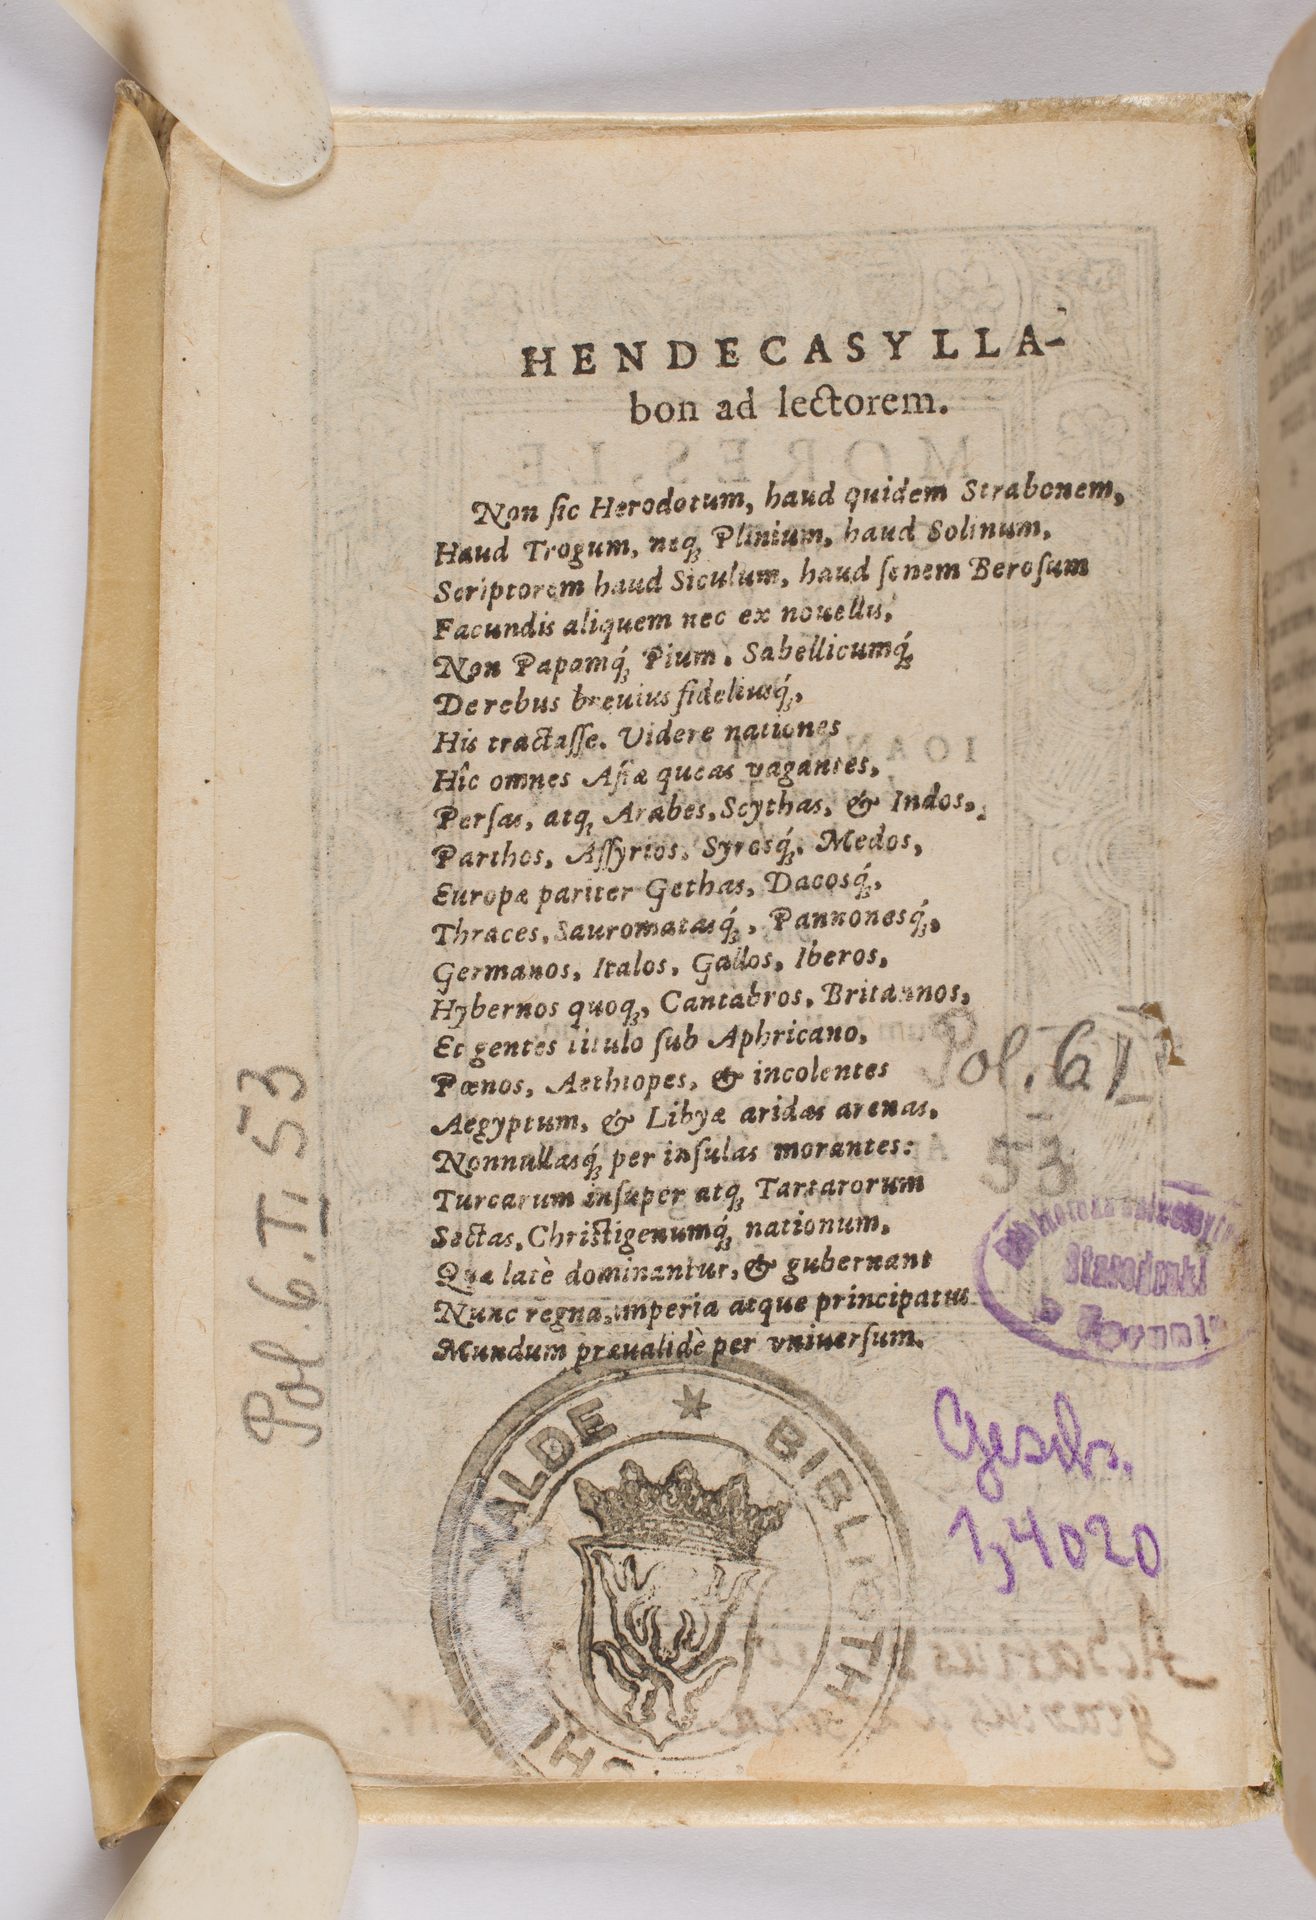 HENDECASYLLA-
bon ad lectorem.
Non ſic Herodotum, haud quidem Strabonem,
Haud Trogum, neq́; Plinium, haud Solinum,
Scriptorem haud Siculum, haud ſenem Beroſum
Facundis aliquem nec ex nouellis,
Non Papamq́; Pium, Sabellicumq́;
De rebus breuius fideliusq́;,
His tractaſſe. Videre nationes
Hîc omnes Aſiæ queas vagantes,
Perſas, atq; Arabes, Scythas, & Indos,
Parthos, Aſſyrios, Syrosq́;, Medos,
Europæ pariter Gethas, Dacosq́;,
Thraces, Sauromatasq́;, Pannonasq́;,
Germanos, Italos, Gallos, Iberos,
Hybernos quoq;, Cantabros, Britannos,
Et gentes titulo ſub Aphricano,
Pœnos, Aethiopes, & incolentes
Aegyptum, & Libyæ aridas arenas,
Nonnullasq́; per inſulas morantes:
Turcarum inſuper atq; Tartarorum
Sectas, Chriſtigenumq́; nationum,
Quæ latè dominantur, & gubernant
Nunc regna, imperia atque principatus
Mundum præualidè per vniuerſum.
Pol. 6. T. 53
Pol. 6 T.
53
Starodruki
Gesch.
1,4020
BIBLIOTH